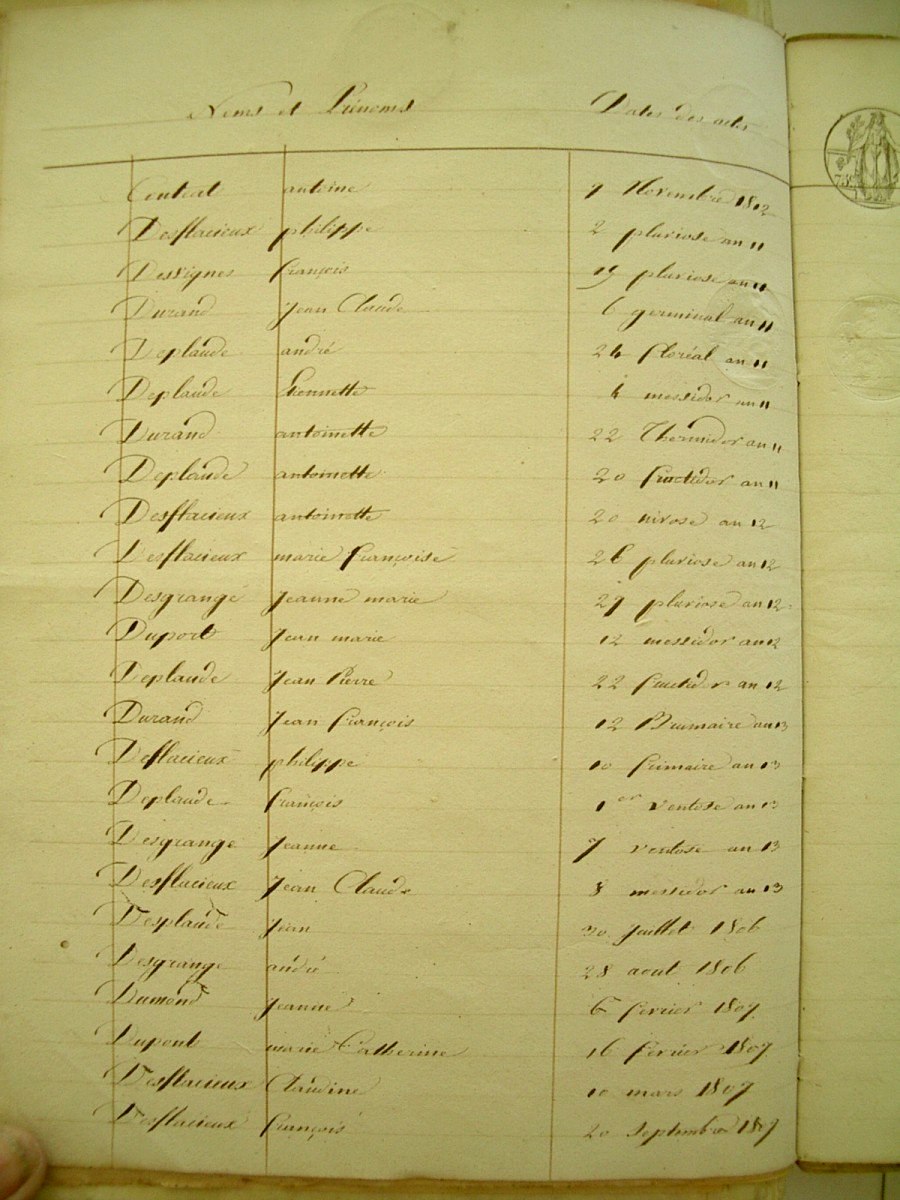 Noms et Prénoms Dates des actes
Contrat antoine 7 Novembre 1812
Desflacieux philippe 2 pluviose an 11
Desvignes françois 19 pluviose an 11
Durand Jean Claude 6 germinal an 11
Deplaude andré 24 floréal an 11
Deplaude Etiennette 4 messidor an 11
Durand antoinette 22 Thermidor an 11
Deplaude antoinette 20 fructidor an 11
Desflacieux antoinette 20 nivose an 12
Desflacieux marie françoise 26 pluviose an 12
Desgrange Jeanne marie 29 pluviose an 12
Duport Jean marie 12 messidor an 12
Deplaude Jean Pierre 22 fructidor an 12
Durand Jean françois 12 Brumaire an 13
Deflacieux philippe 10 frimaire an 13
Deplaude françois 1er ventose an 13
Desgrange Jeanne 7 ventose an 13
Desflacieux Jean Claude 8 messidor an 13
Desplaude Jean 30 Juillet 1806
Desgrange andré 28 aout 1806
Dumond Jeanne 6 fevrier 1807
Dupont marie Catherine 16 fevrier 1807
Desflacieux Claudine 10 mars 1807
Desflacieux françois 20 Septembre 1807